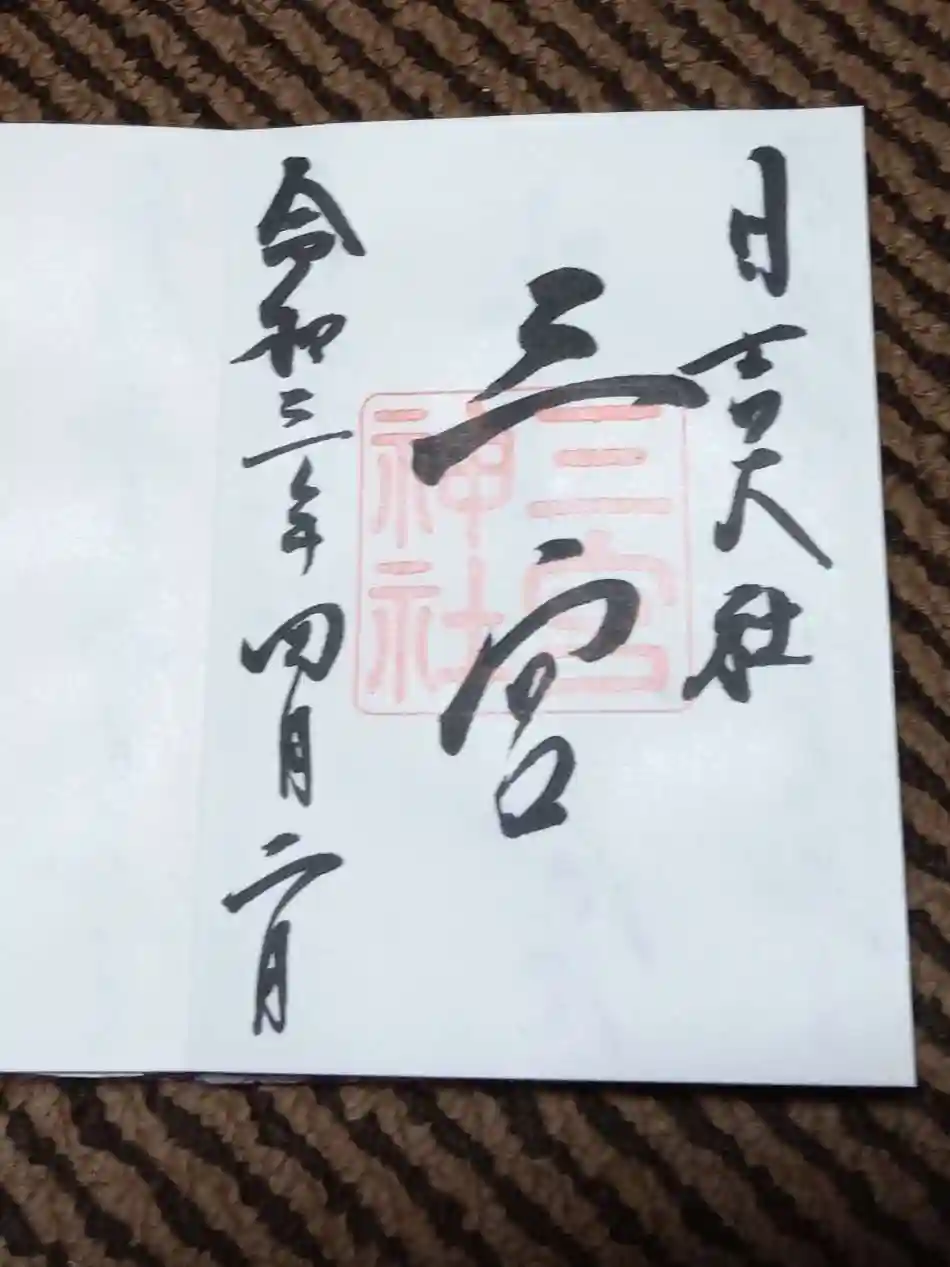 日吉大社
三宮
三宮
神社
令和三年四月二日